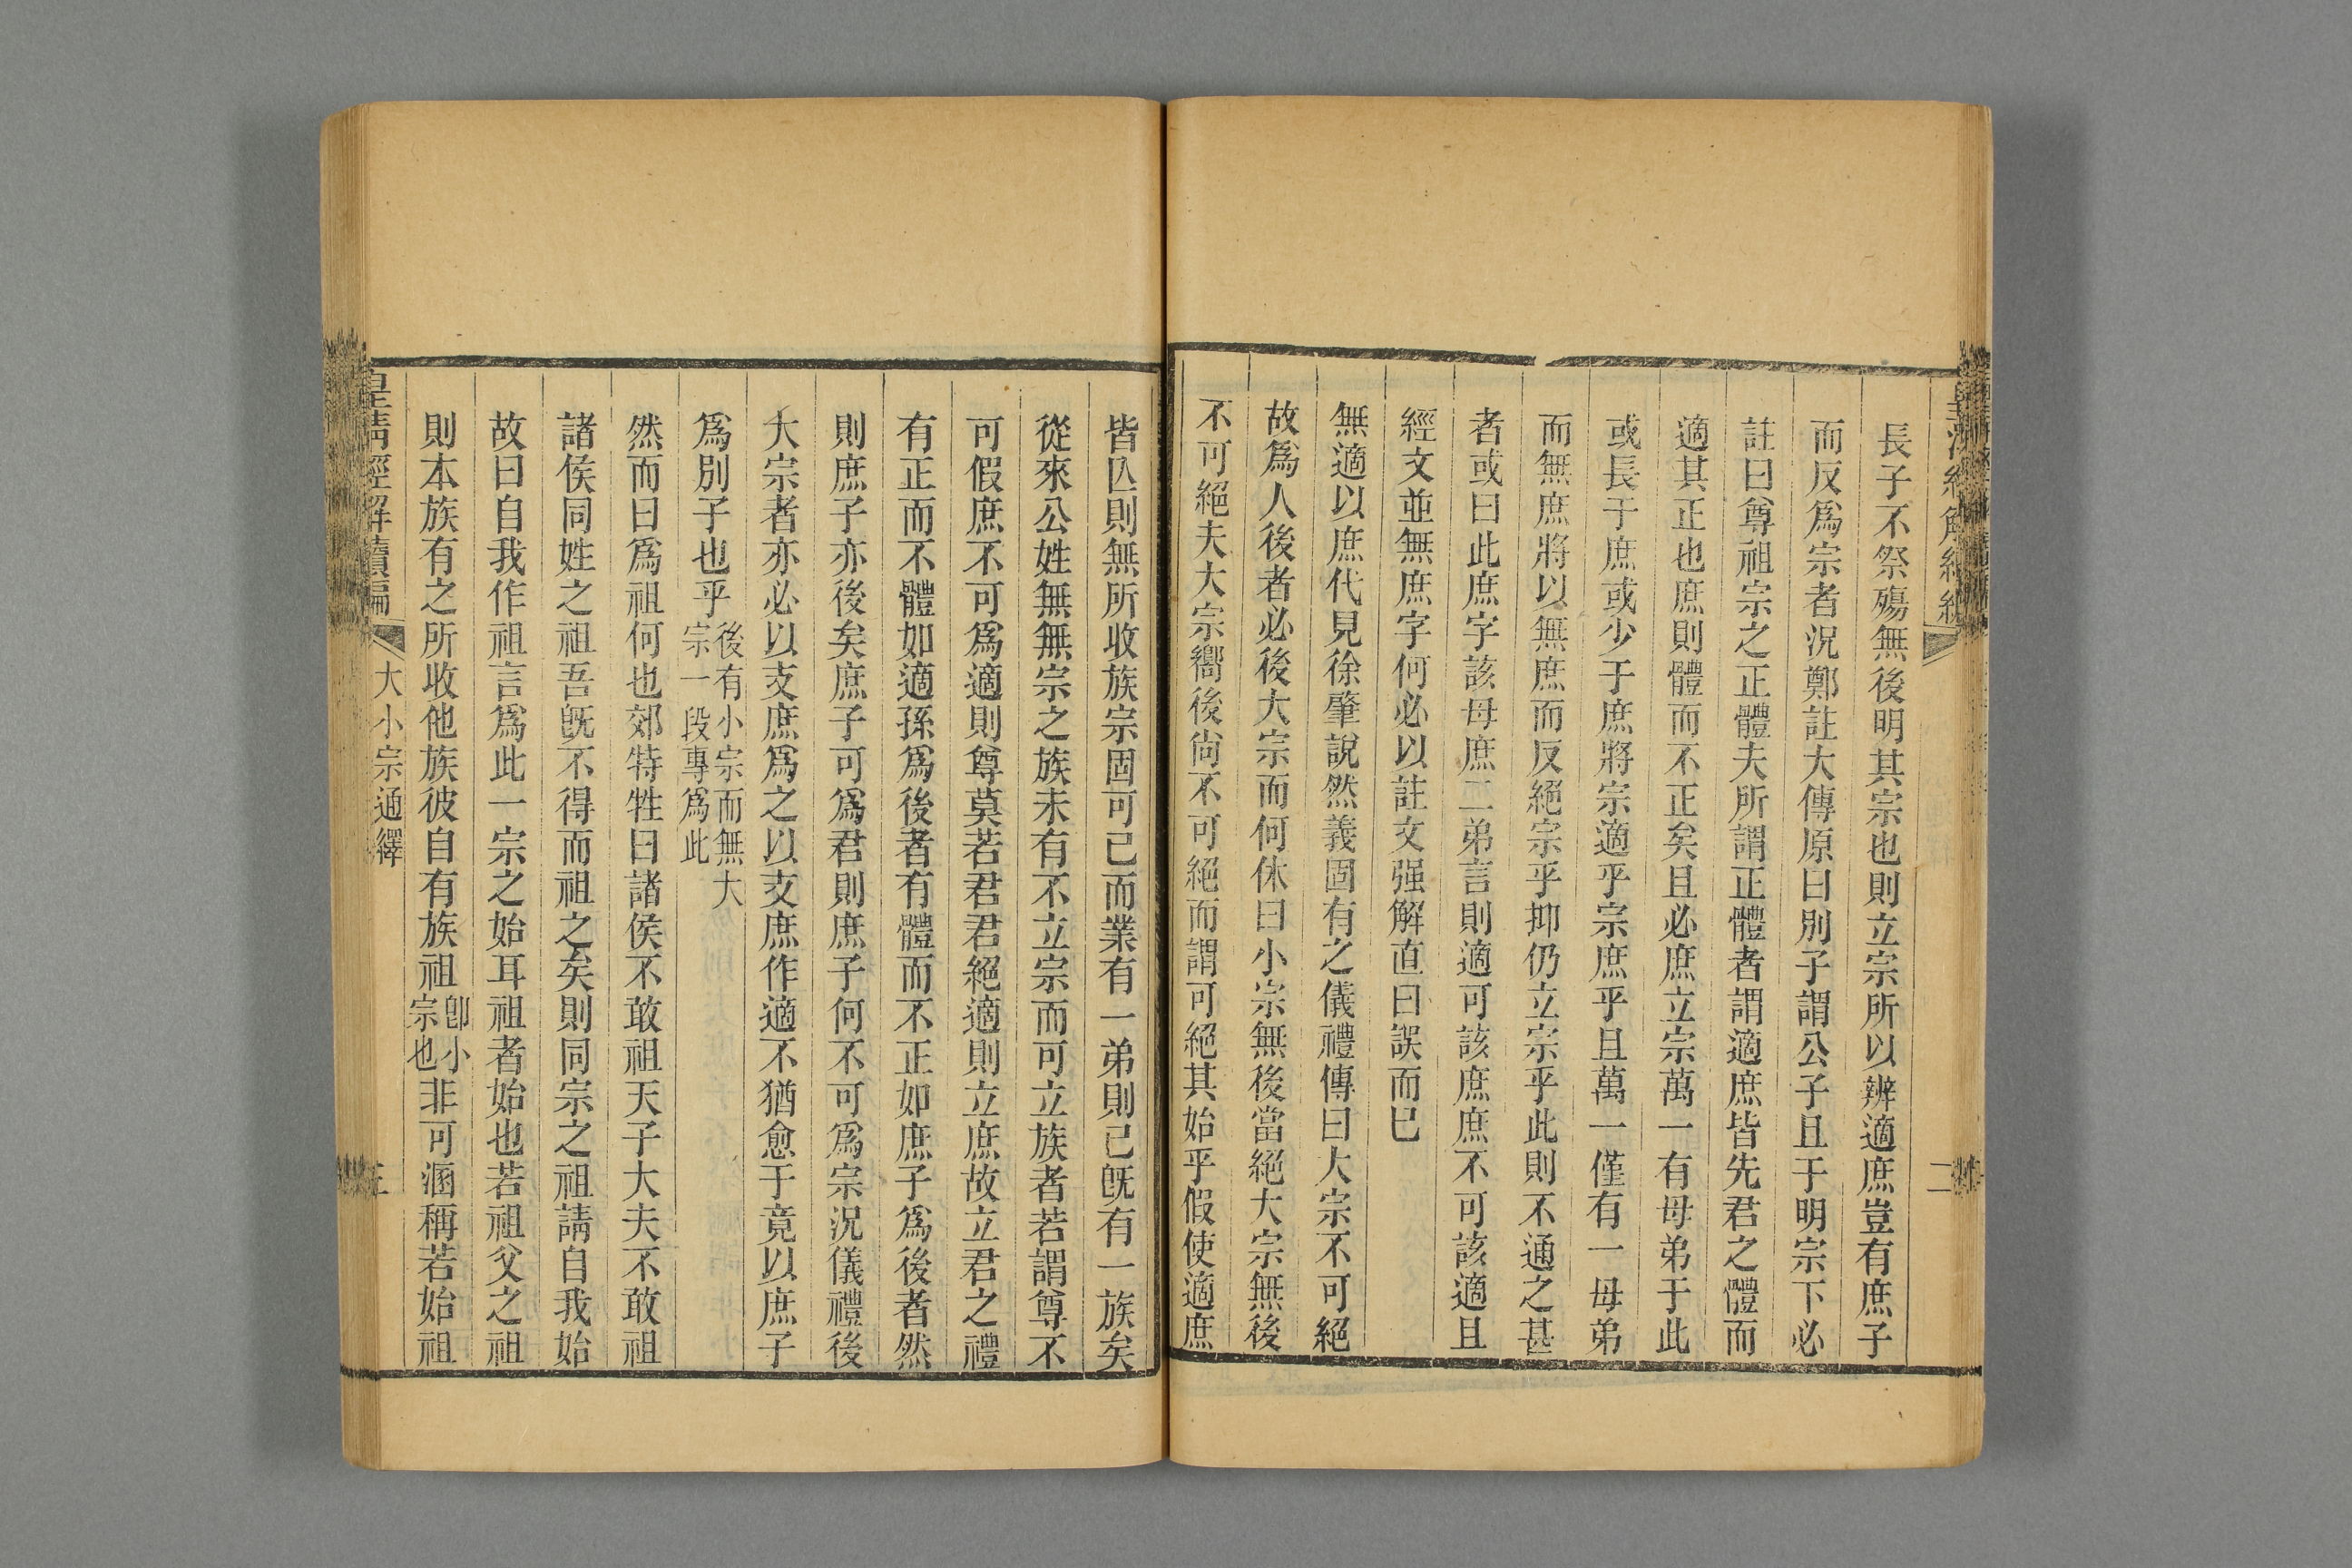 長子不祭殤無後明其宗也則立宗所以辨適庶豈有庶子
而反爲宗者況鄭註大傳原曰別子謂公子且于明宗下必
註曰尊祖宗之正體夫所謂正體者謂適庶皆先君之體而
適其正也庶則體而不正矣且必庶立宗萬一有母弟于此
或長于庶或少于庶將宗適乎宗庶乎且萬一僅有一母弟
而無庶將以無庶而反絕宗乎抑仍立宗乎此則不通之甚
者或曰此庶字該母庶二弟言則適可該庶庶不可該適且
經文並無庶字何必以註文强解直曰誤而已
無適以庶代見徐肇說然義固有之儀禮傳曰大宗不可絕
故爲人後者必後大宗而何休曰小宗無後當絕大宗無後
不可絕夫大宗嚮後尙不可絕而謂可絕其始乎假使適庶
皆亾則無所收族宗固可已而業有一弟則已旣有一族矣
從來公姓無無宗之族未有不立宗而可立族者若謂尊不
可假庶不可爲適則尊莫若君君絕適則立庶故立君之禮
有正而不體如適孫爲後者有體而不正如庶子爲後者然
則庶子亦後矣庶子可爲君則庶子何不可爲宗況儀禮後
大宗者亦必以支庶爲之以支庶作適不猶愈于竟以庶子
爲別子也乎後有小宗而無大宗一段專爲此
然而曰爲祖何也郊特牲曰諸侯不敢祖天子大夫不敢祖
諸侯同姓之祖吾旣不得而祖之矣則同宗之祖請自我始
故曰自我作祖言爲此一宗之始耳祖者始也若祖父之祖
則本族有之所收他族彼自有族祖卽小宗也非可溷稱若始祖
皇清經解續編 大小宗通繹 三
二